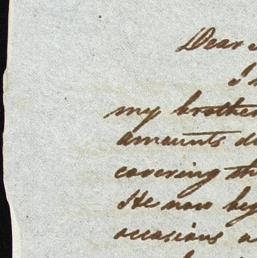 Dear
I
my brother
amounts
covering th
He now beg
occasions a